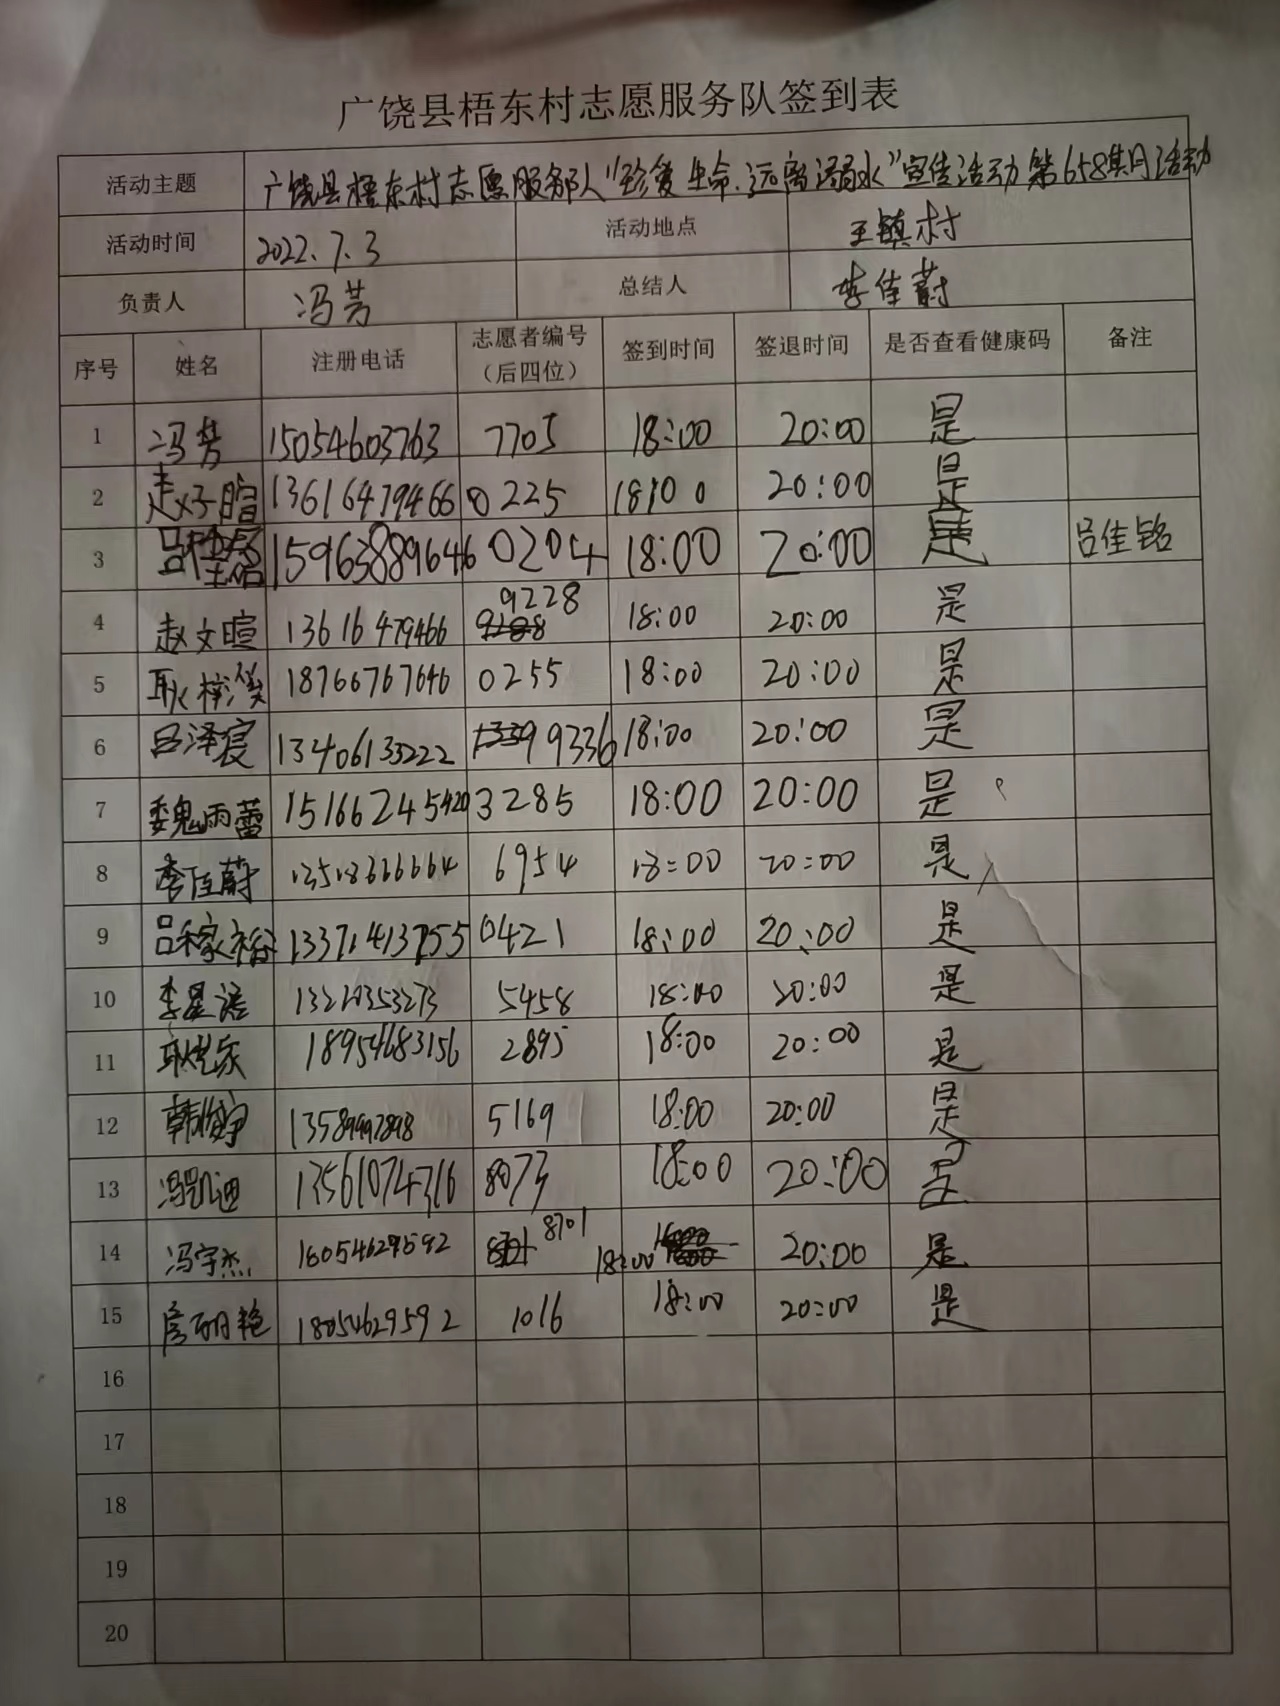 广饶县梧东村志愿服务队签到表
活动主题 广饶县梧东村志愿服务队"珍爱生命.远离溺水"宣传活动第658期活动
活动时间 2022.7.3 活动地点 王镇村
负责人 冯芳 总结人 李佳蔚
序号 姓名 注册电话 志愿者编号（后四位） 签到时间 签退时间 是否查看健康码 备注
1 冯芳 15054603763 7705 18:00 20:00 是
2 赵子暄 13616479466 0225 18:00 20:00 是
3 15963889646 0204 18:00 20:00 是 吕佳铭
4 赵文暄 13616479466 9228 18:00 20:00 是
5 耿梓淇 18766767646 0255 18:00 20:00 是
6 吕泽宸 13406135222 9336 18:00 20:00 是
7 魏雨蕾 15166245420 3285 18:00 20:00 是
8 李佳蔚 6954 18:00 20:00 是
9 吕稼裕 13371413755 0421 18:00 20:00 是
10 李星语 5458 18:00 20:00 是
11 18954683156 2895 18:00 20:00 是
12 5169 18:00 20:00 是
13 冯凯迪 13561074316 8073 18:00 20:00 是
14 冯宇杰 18054629592 8701 18:00 20:00 是
15 18054629592 1016 18:00 20:00 是
16
17
18
19
20